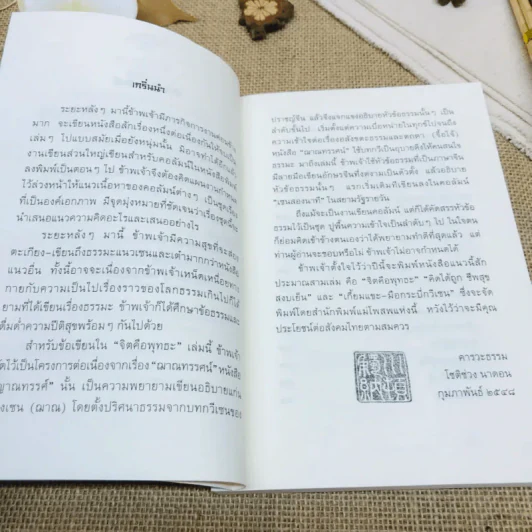 เกริ่นนำ
ระยะหลังๆ มานี้ข้าพเจ้ามีภารกิจการงานค่อนข้าง
มาก จะเขียนหนังสือสักเรื่องหนึ่งต่อเนื่องกันให้เป็น
เล่มๆ ไปแบบสมัยเมื่อยังหนุ่มนั้น มิอาจทำได้
งานเขียนส่วนใหญ่เขียนสำหรับคอลัมน์ในหนังสือ
ลงพิมพ์เป็นตอนๆ ไป ข้าพเจ้าจึงต้องคิดแผนงานกำหนด
ไว้ล่วงหน้าให้แนวเนื้อหาของคอลัมน์ต่างๆ เป็นชุดเรื่อง
ที่เป็นองค์เอกภาพ มีจุดมุ่งหมายที่ชัดเจนว่าเรื่องชุดนี้
นำเสนอแนวความคิดอะไรและเสนออย่างไร
ระยะหลังๆ มานี้ ข้าพเจ้ามีความสุขที่จะ
ตะเกียง-เขียนถึงธรรมะแนวเซนและเต๋ามากกว่าหนังสือ
แนวอื่น ทั้งนี้อาจจะเนื่องจากข้าพเจ้าเหน็ดเหนื่อยทาง
กายกับความเป็นไปเรื่องราวของโลกธรรมเกินไปก็ได้
ยามที่ได้เขียนเรื่องธรรมะ ข้าพเจ้าก็ได้ศึกษาข้อธรรมและ
ดื่มด่ำความปีติสุขพร้อมๆ กันไปด้วย
สำหรับข้อเขียนใน “จิตคือพุทธะ” เล่มนี้ ข้าพเจ้า
จัดไว้เป็นโครงการต่อเนื่องจากเรื่อง “ฌาณทรรศน์” หนังสือ
“ฌาณทรรศน์” นั้น เป็นความพยายามเขียนอธิบายแก่น
ของเซน (ฌาณ) โดยตั้งปริศนาธรรมจากบทกวีเซนของ
ปราชญ์จีน แล้วจึงแจกแจงอธิบายหัวข้อธรรมนั้นๆ เป็น
ลำดับขั้นไป เริ่มตั้งแต่ความเบื่อหน่ายในทุกข์ไปจนถึง
ความเข้าใจต่อเรื่องอสังขตะธรรมและตถตา (จื้อไจ้)
หนังสือ “ฌาณทรรศน์” ใช้บทกวีเป็นกุญแจดึงให้คนสนใจ
ธรรมะ มาถึงเล่มนี้ ข้าพเจ้าใช้หัวข้อธรรมที่เป็นภาษาจีน
มีลายมือเขียนอักษรจีนที่งดงามเป็นตัวตั้ง แล้วอธิบาย
หัวข้อธรรมนั้นๆ แรกเริ่มเดิมทีเขียนลงในคอลัมน์
“เซนสองนาที” ในสยามรัฐรายวัน
ถึงแม้จะเป็นงานเขียนคอลัมน์ แต่ก็ได้คัดสรรหัวข้อ
ธรรมไว้เป็นชุด ปูพื้นความเข้าใจเป็นลำดับๆ ไป ในใจตน
ก็ย่อมคิดเข้าข้างตนเองว่าได้พยายามทำดีที่สุดแล้ว แต่
ท่านผู้อ่านจะชอบหรือไม่ ข้าพเจ้าไม่อาจกำหนดได้
ข้าพเจ้าตั้งใจไว้ว่าปีนี้จะพิมพ์หนังสือแนวนี้สัก
ประมาณสามเล่ม คือ “จิตคือพุทธะ” “คิดได้ถูก ชีพสุข
สงบเย็น” และ “เกี๊ยมแชะ-มือกระบี่กวีเซน” ซึ่งจะจัด
พิมพ์โดยสำนักพิมพ์แม่โพสพแห่งนี้ หวังไว้ว่าจะมีคุณ
ประโยชน์ต่อสังคมไทยตามสมควร
คารวะธรรม
โชติช่วง นาดอน
กุมภาพันธ์ ๒๕๔๘